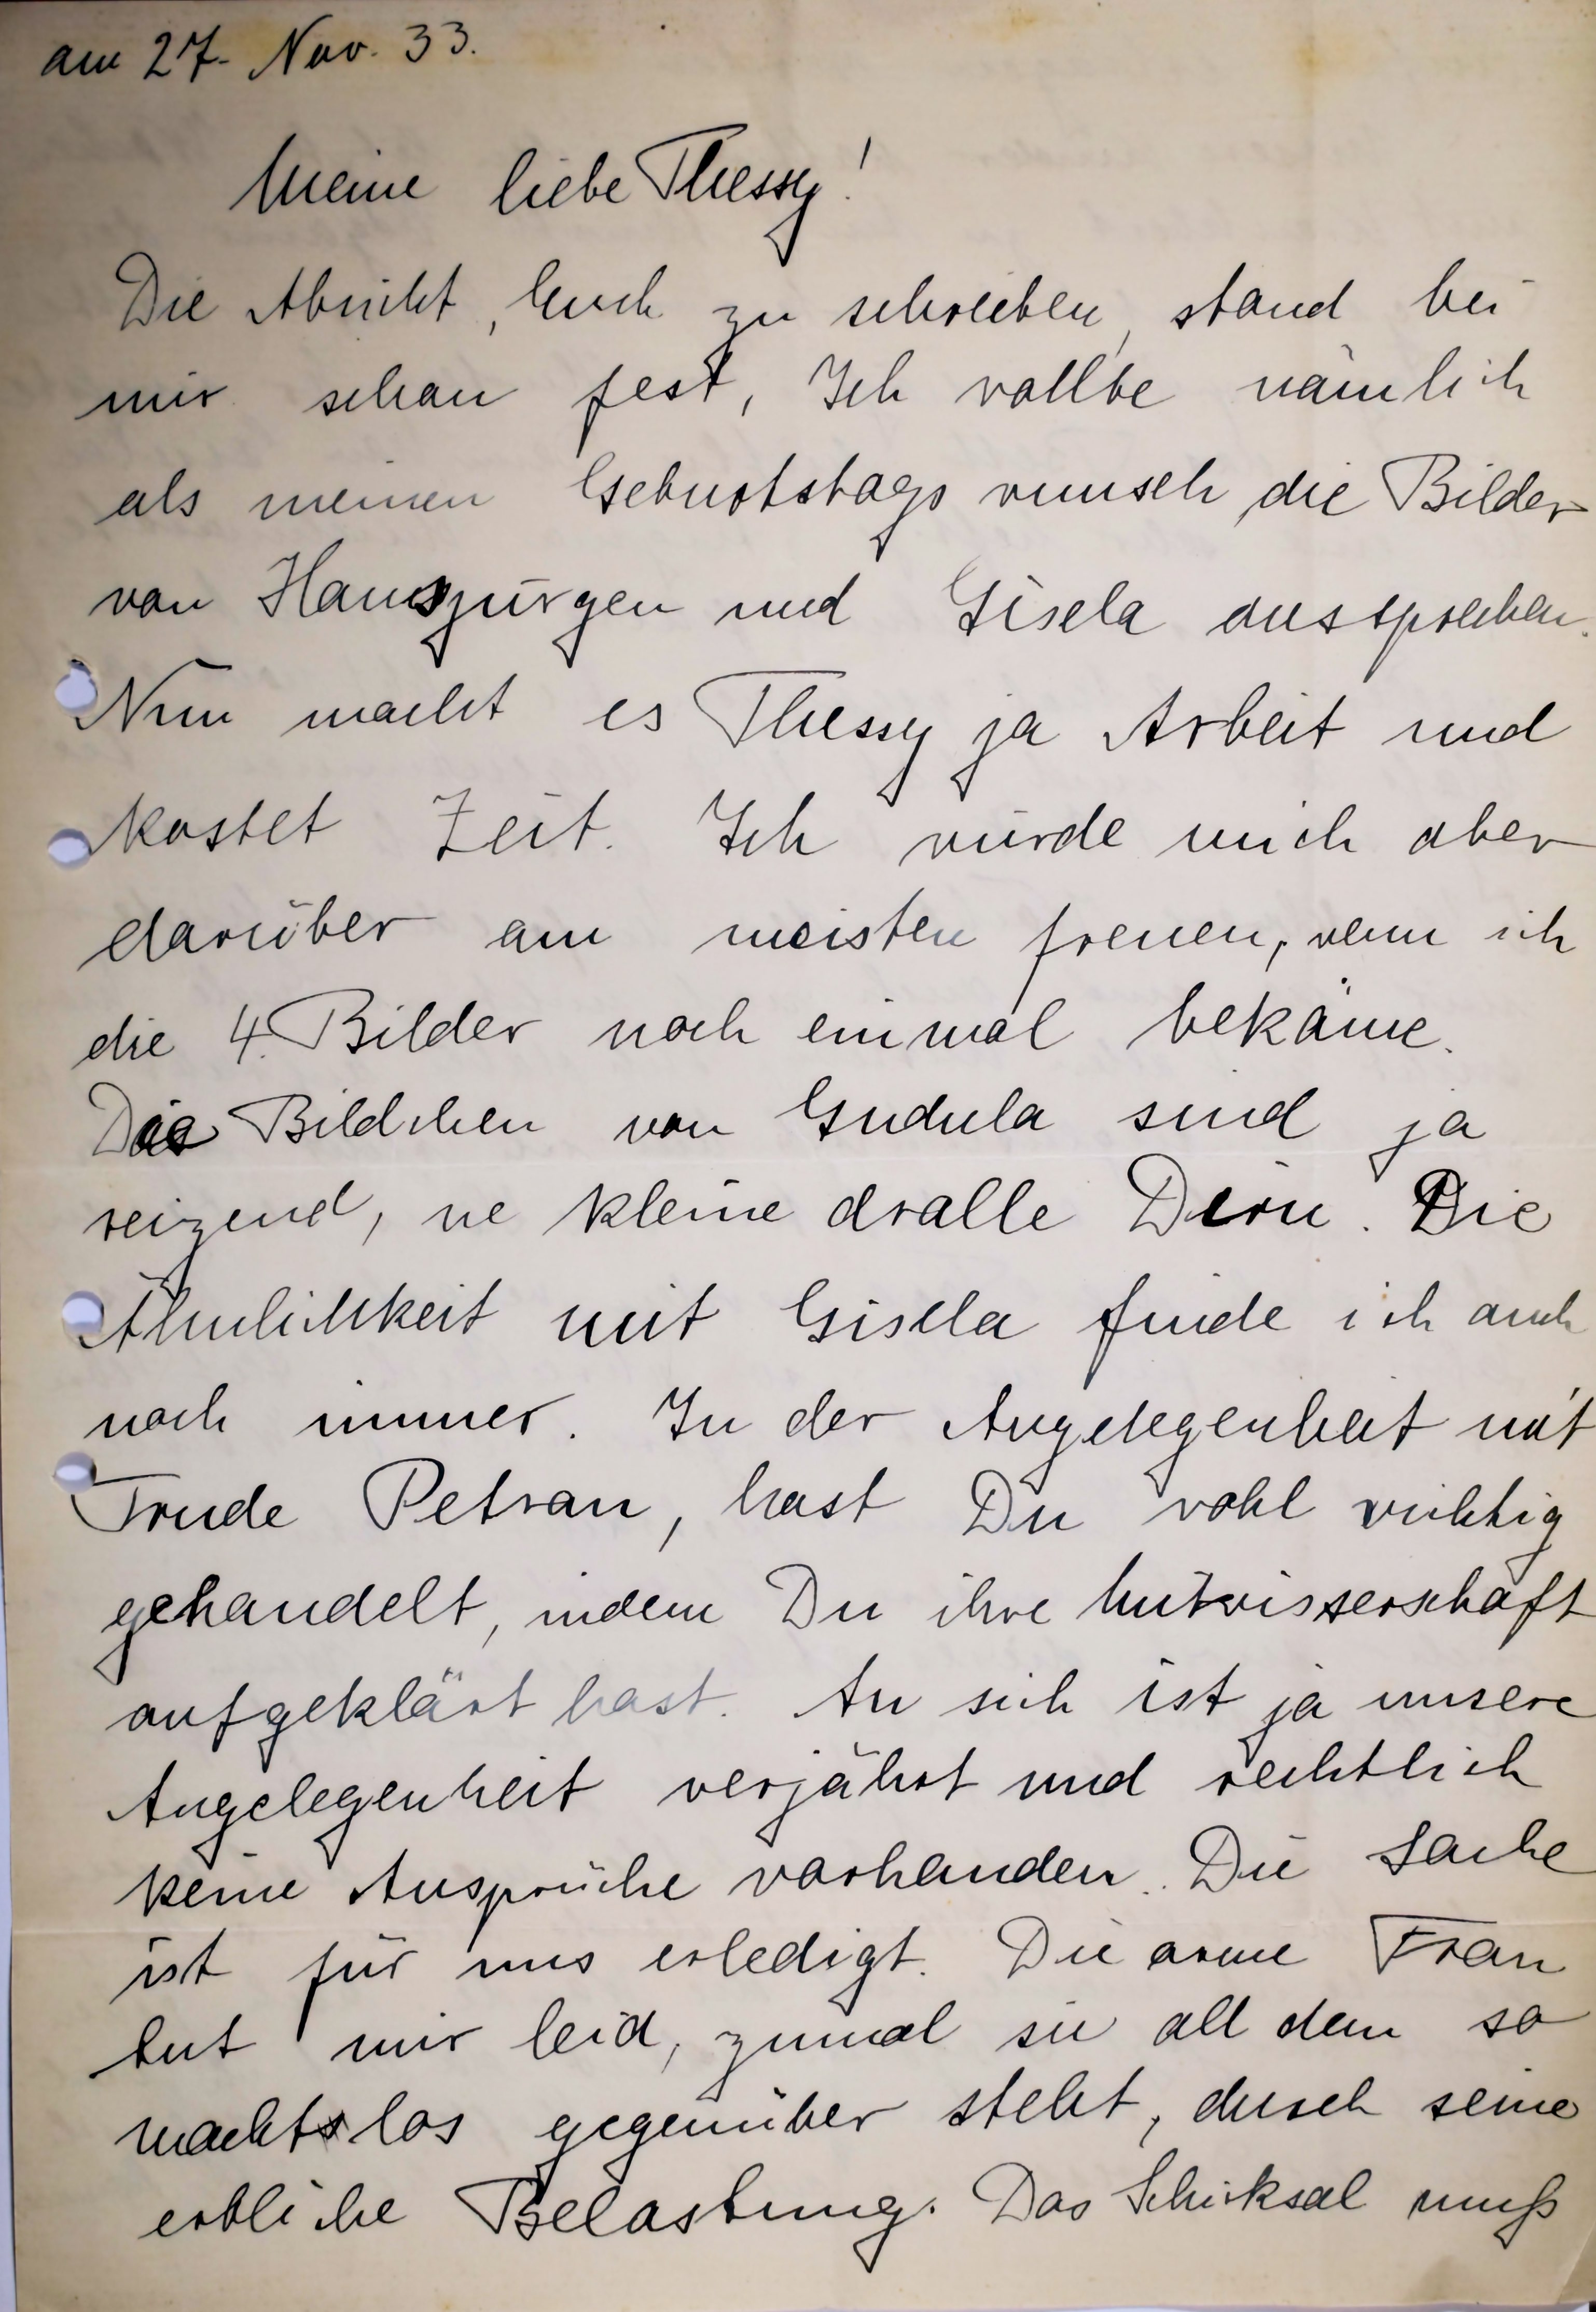 am 27. Nov. 33.
Meine liebe Thessy!
Die Absicht, Euch zu schreiben, stand bei
mir schon fest, Ich wollte nämlich
als meinen Geburtstags wunsch die Bilder
von Hansjürgen und Gisela aussprechen.
Nun macht es Thessy ja Arbeit und
kostet Zeit. Ich würde mich aber
darüber am meisten freuen, wenn ich
die 4 Bilder noch einmal bekäme.
Die Bildchen von Gudula sind ja
reizend, ne kleine dralle Dirn. Die
Ähnlichkeit mit Gisela finde ich auch
noch immer. In der Angelegenheit mit
Trude Petran, hast Du wohl richtig
gehandelt, indem Du ihre Mitwisserschaft
aufgeklärt hast. An sich ist ja unsere
Angelegenheit verjährt und rechtlich
keine Ansprüche vorhanden. Die Sache
ist für uns erledigt. Die arme Frau
tut mir leid, zumal sie all dem so
machtlos gegenüber steht, durch seine
erbliche Belastung. Das Schicksal muß